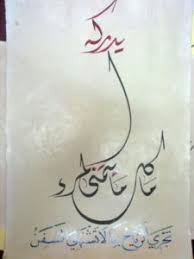 ما كل ما يتمنى المرء
يدركه
تجري الرياح بما لا تشتهي السفن